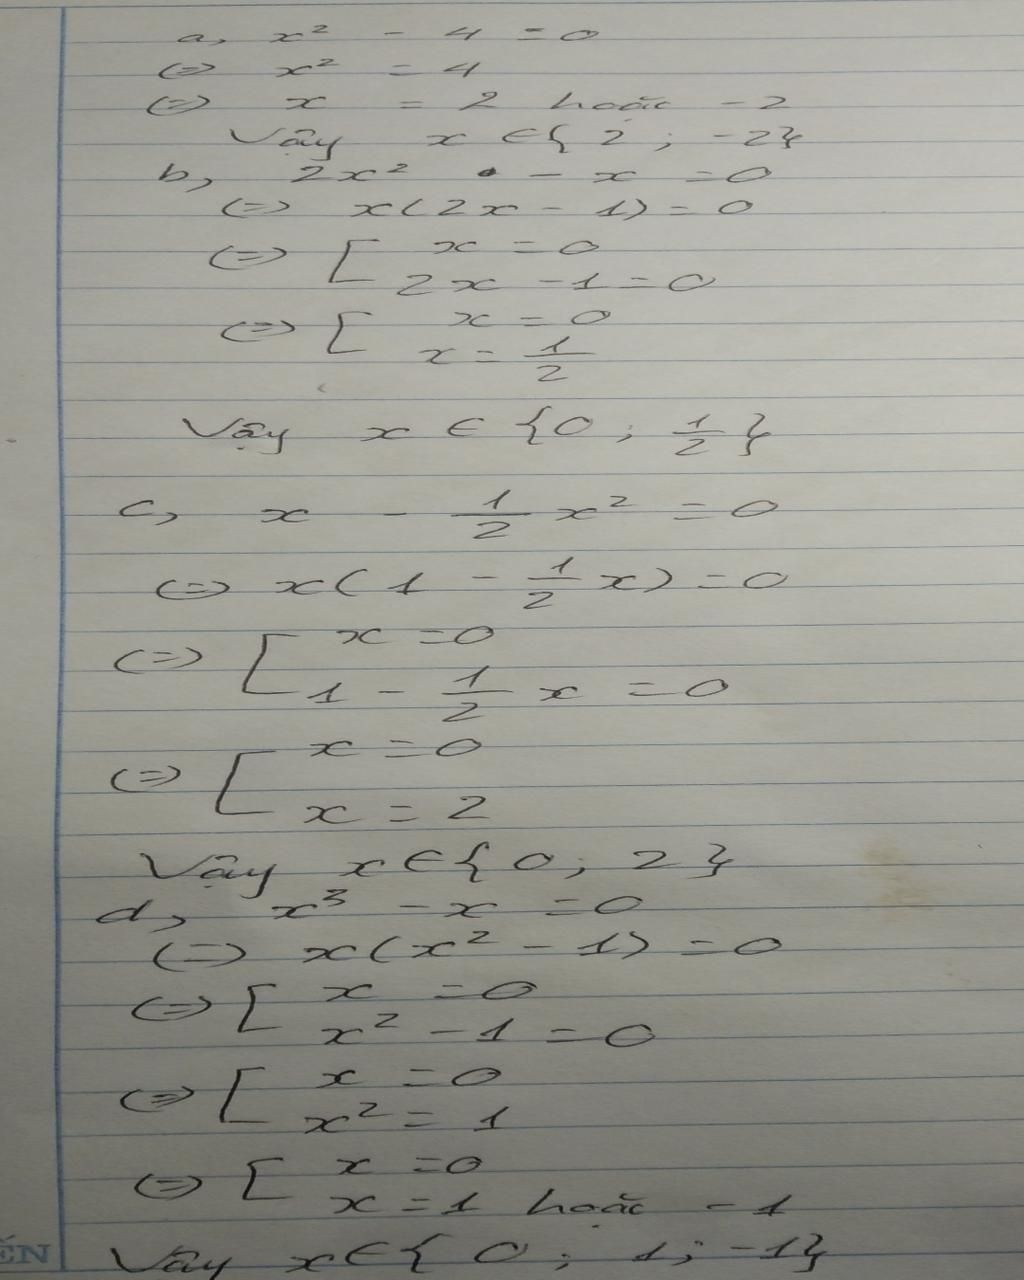 a, x² - 4 = 0
(=) x² = 4
(=) x = 2 hoặc -2
Vậy x ∈ { 2 ; -2}
b, 2x² - x = 0
(=) x(2x - 1) = 0
(=) [ x = 0
2x - 1 = 0
(=) [ x = 0
x = 1/2
Vậy x ∈ {0 ; 1/2}
c, x - 1/2 x² = 0
(=) x(1 - 1/2 x) = 0
(=) [ x = 0
1 - 1/2 x = 0
(=) [ x = 0
x = 2
Vậy x ∈ { 0 ; 2 }
d, x³ - x = 0
(=) x(x² - 1) = 0
(=) [ x = 0
x² - 1 = 0
(=) [ x = 0
x² = 1
(=) [ x = 0
x = 1 hoặc - 1
ẾN
Vây x ∈ { 0 ; 1 ; -1}